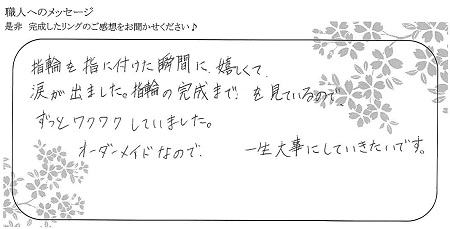 職人へのメッセージ
是非 完成したリングのご感想をお聞かせください♪
指輪を指に付けた瞬間に、嬉しくて、
涙が出ました。指輪の完成まで を見ているので、
ずっとワクワクしていました。
オーダーメイドなので、 一生大事にしていきたいです。